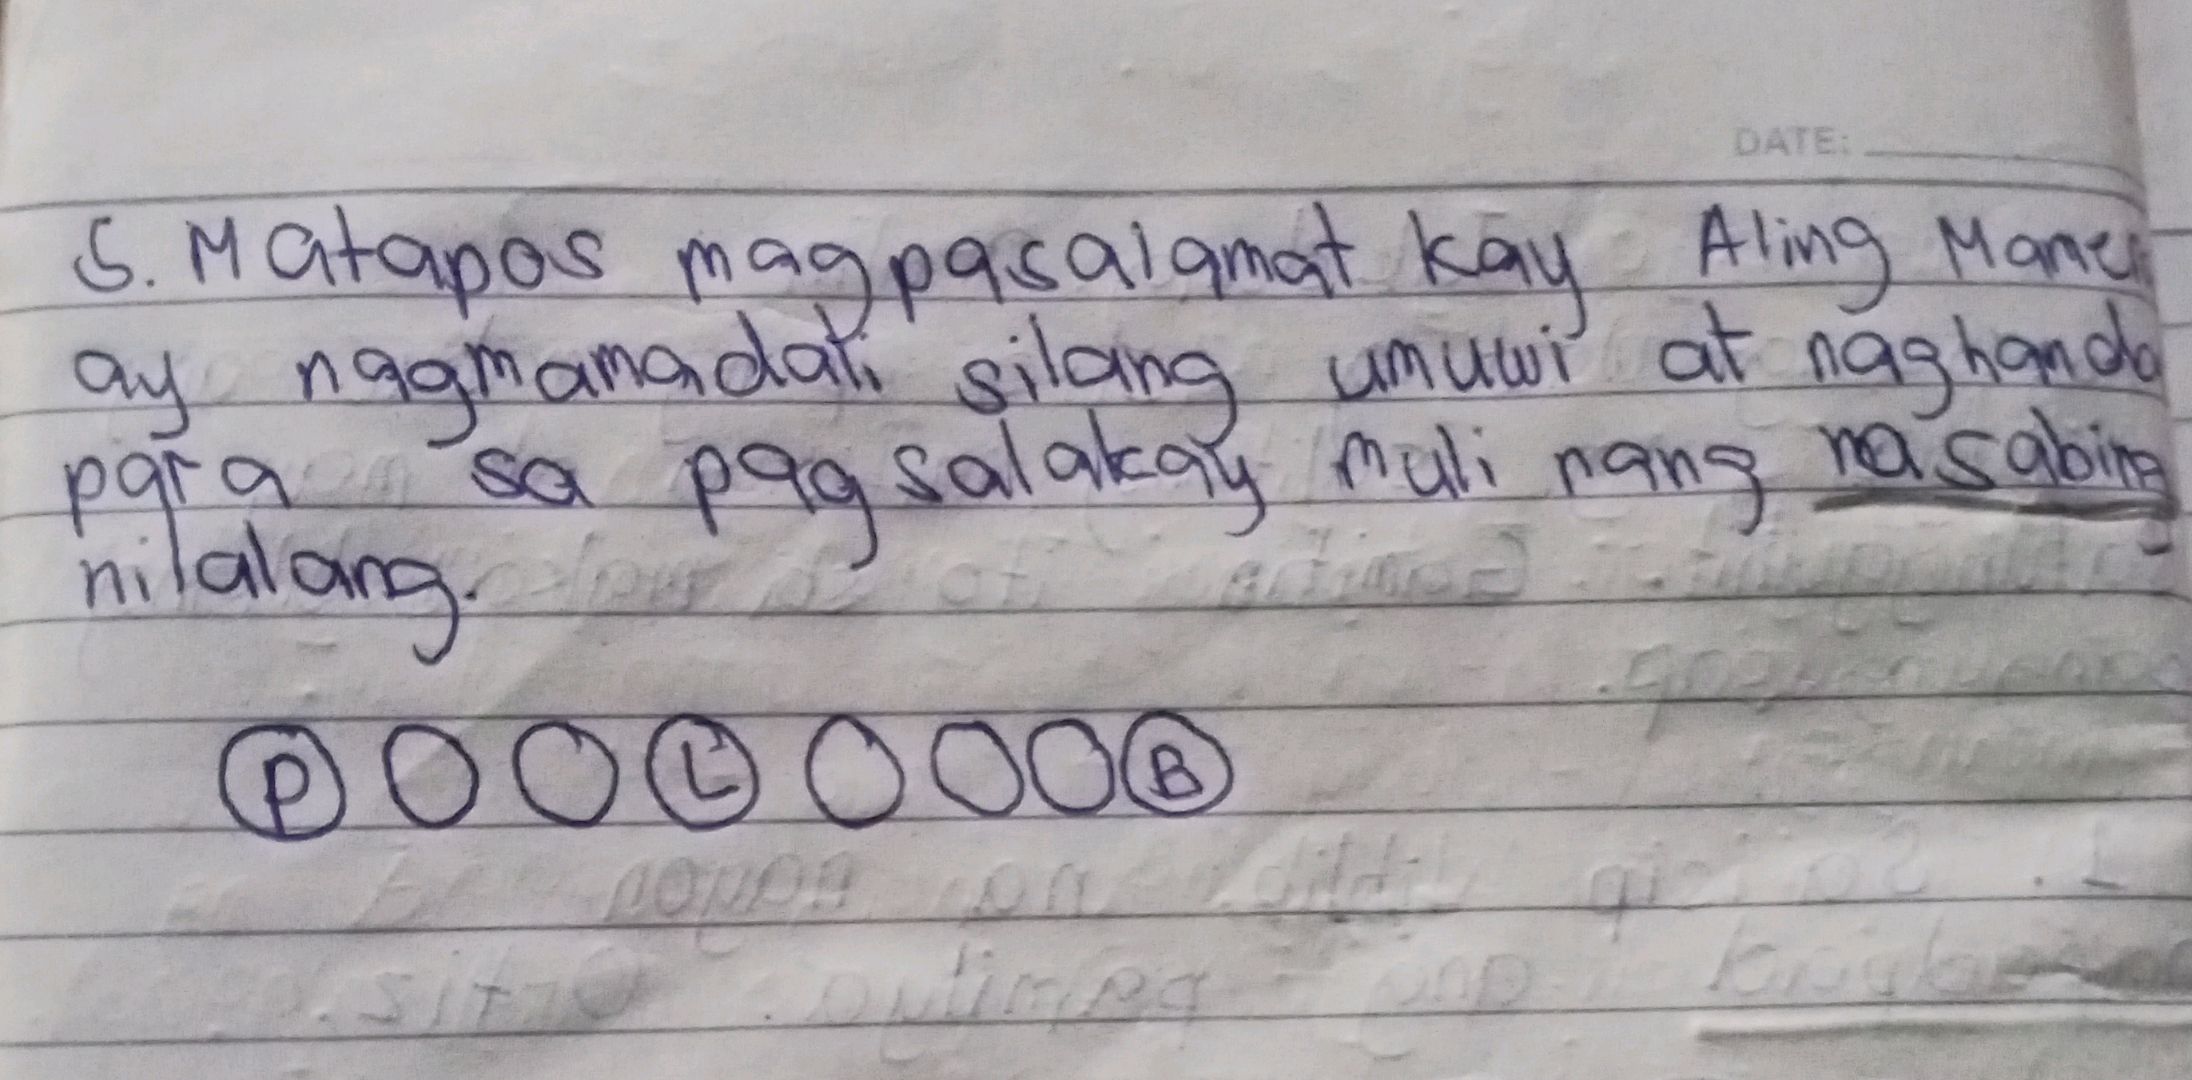 DATE:
5. Matapos magpasalamat kay Aling
ay nagmamadali silang umuwi at naghanda
para sa pagsalakay muli nang nasabing
nilalang.
P L B